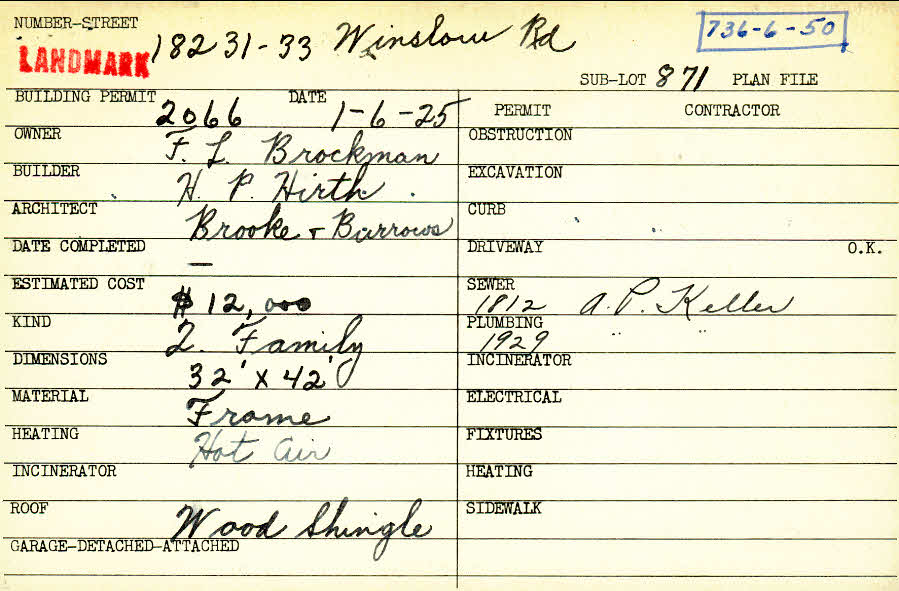 NUMBER-STREET 18231-33 Winslow Rd 736-6-50
LANDMARK
SUB-LOT 871 PLAN FILE
BUILDING PERMIT 2066 DATE 1-6-25
PERMIT CONTRACTOR
OWNER F. L. Brockman
OBSTRUCTION
BUILDER H. P. Hirth
EXCAVATION
ARCHITECT Brooke + Burrows
CURB
DATE COMPLETED —
DRIVEWAY O.K.
ESTIMATED COST $12,000
SEWER 1812 A. P. Keller
KIND 2. Family
PLUMBING 1929 " "
DIMENSIONS 32' x 42'
INCINERATOR
MATERIAL Frame
ELECTRICAL
HEATING Hot Air
FIXTURES
INCINERATOR
HEATING
ROOF Wood Shingle
SIDEWALK
GARAGE-DETACHED-ATTACHED